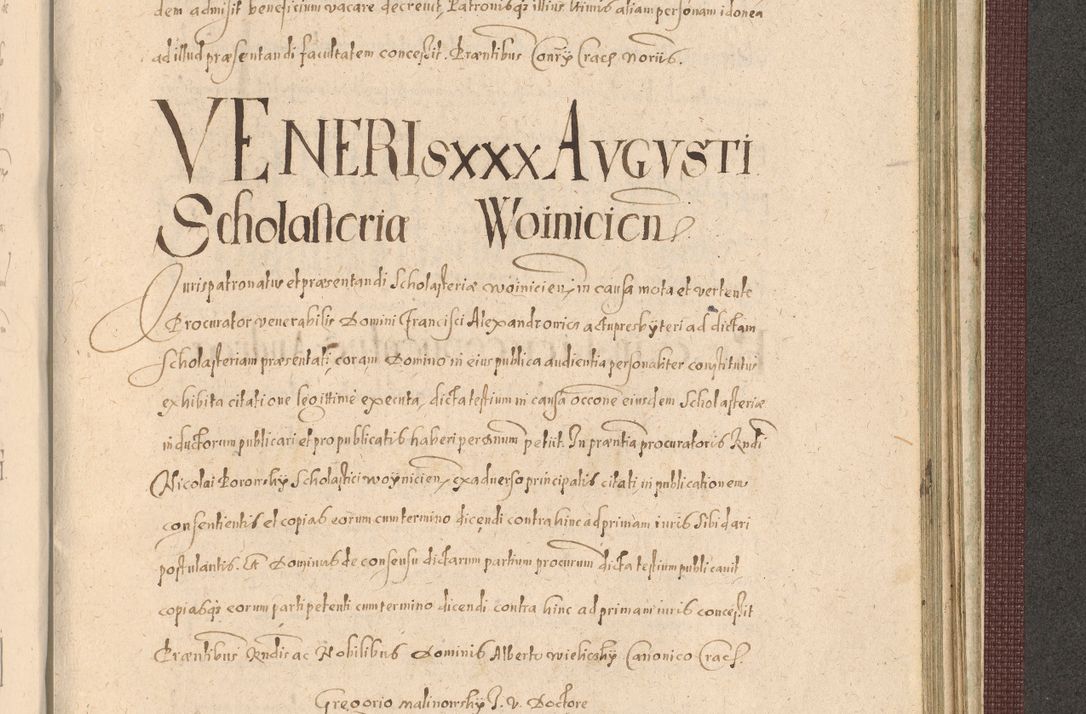 dem admisit beneficium vacare decrevit, Patronisq3 illius ultimis aliam personam idonea
ad illud præsentandi facultatem concessit. Præntibus Conrÿ Crac˜ Noriis.
VENERIS XXX AVGVSTI
Scholasteria Woinicien
Jurispatronatus et præsentandi Scholasteriæ woinicien, in causa mota et vertente
Procurator venerabilis Domini Francisci Alexandrowics actu presbÿteri ad dictam
scholasteriam præsentati, coram Domino in eius publica audientia personaliter constitutus
exhibita citatione legittimè executa, dicta testium in causa occone eiusdem Scholasteriæ
inductorum publicari et pro publicatis haberi per Dnum petiit. In præntia procuratoris Rndi
Nicolai Borowskÿ Scholastici woÿnicien, ex adverso principalis citati in publicationem
consentientis et copias eorum cum termino dicendi contra hinc ad primam iuris sibi dari
postulantis. Et Dominus de consensu dictarum partium procurum dicta testium publicavit
copiasq3 eorum parti petenti cum termino dicendi contra hinc ad primam iuris concessit
Præntibus Rndis ac Nobilibus Dominis Alberto wielicskÿ Canonico Crac˜.
Gregorio malinowskÿ J. V. Doctore